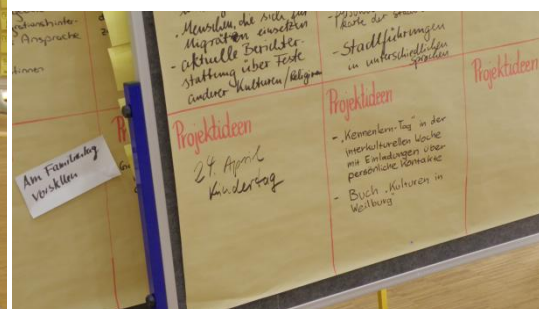 Ansprache
Am Familientag
vorstellen
Menschen, die sich für
Migration einsetzen
- aktuelle Berichter-
stattung über Feste
anderer Kulturen/Religionen
Projektideen
24. April
Kindertag
- Stadtführungen
in unterschiedlichen
Sprachen
Projektideen
- „Kennenlern-Tag" in der
interkulturellen Woche
mit Einladungen über
persönliche Kontakte
- Buch „Kulturen in
Weilburg"
Projektideen